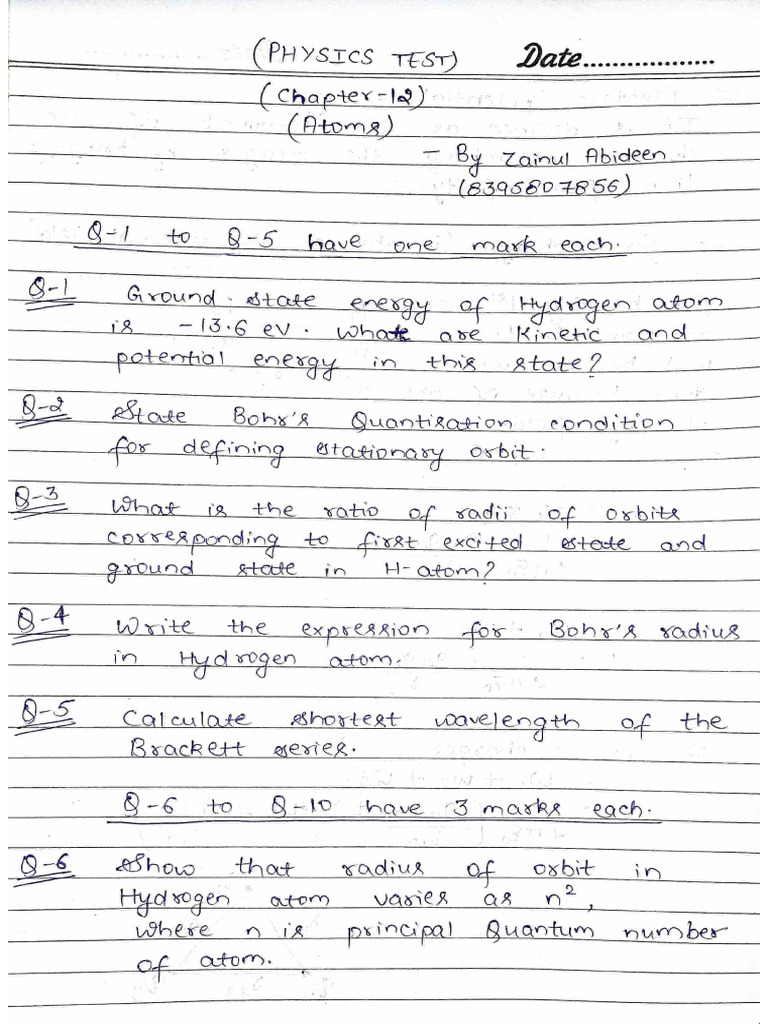 (PHYSICS TEST) Date..................
(Chapter-12)
(Atoms)
- By Zainul Abideen
(8395807856)
Q-1 to Q-5 have one mark each.
Q-1 Ground state energy of Hydrogen atom
is -13.6 eV. What are Kinetic and
potential energy in this state?
Q-2 State Bohr's Quantisation condition
for defining stationary orbit.
Q-3 What is the ratio of radii of orbits
corresponding to first excited state and
ground state in H-atom?
Q-4 Write the expression for Bohr's radius
in Hydrogen atom.
Q-5 Calculate shortest wavelength of the
Brackett series.
Q-6 to Q-10 have 3 marks each.
Q-6 Show that radius of orbit in
Hydrogen atom varies as n²,
where n is principal Quantum number
of atom.